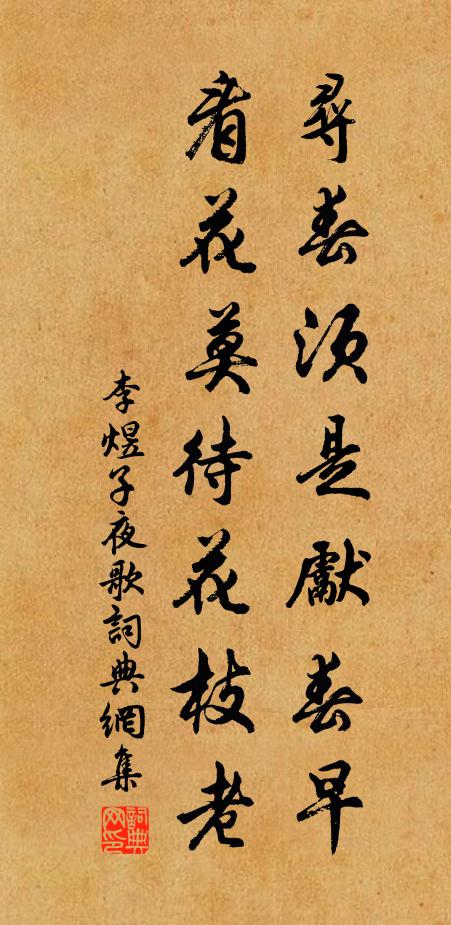 尋春須是獻春早
看花莫待花枝老
李煜子夜歌詞典網集
詞典网印